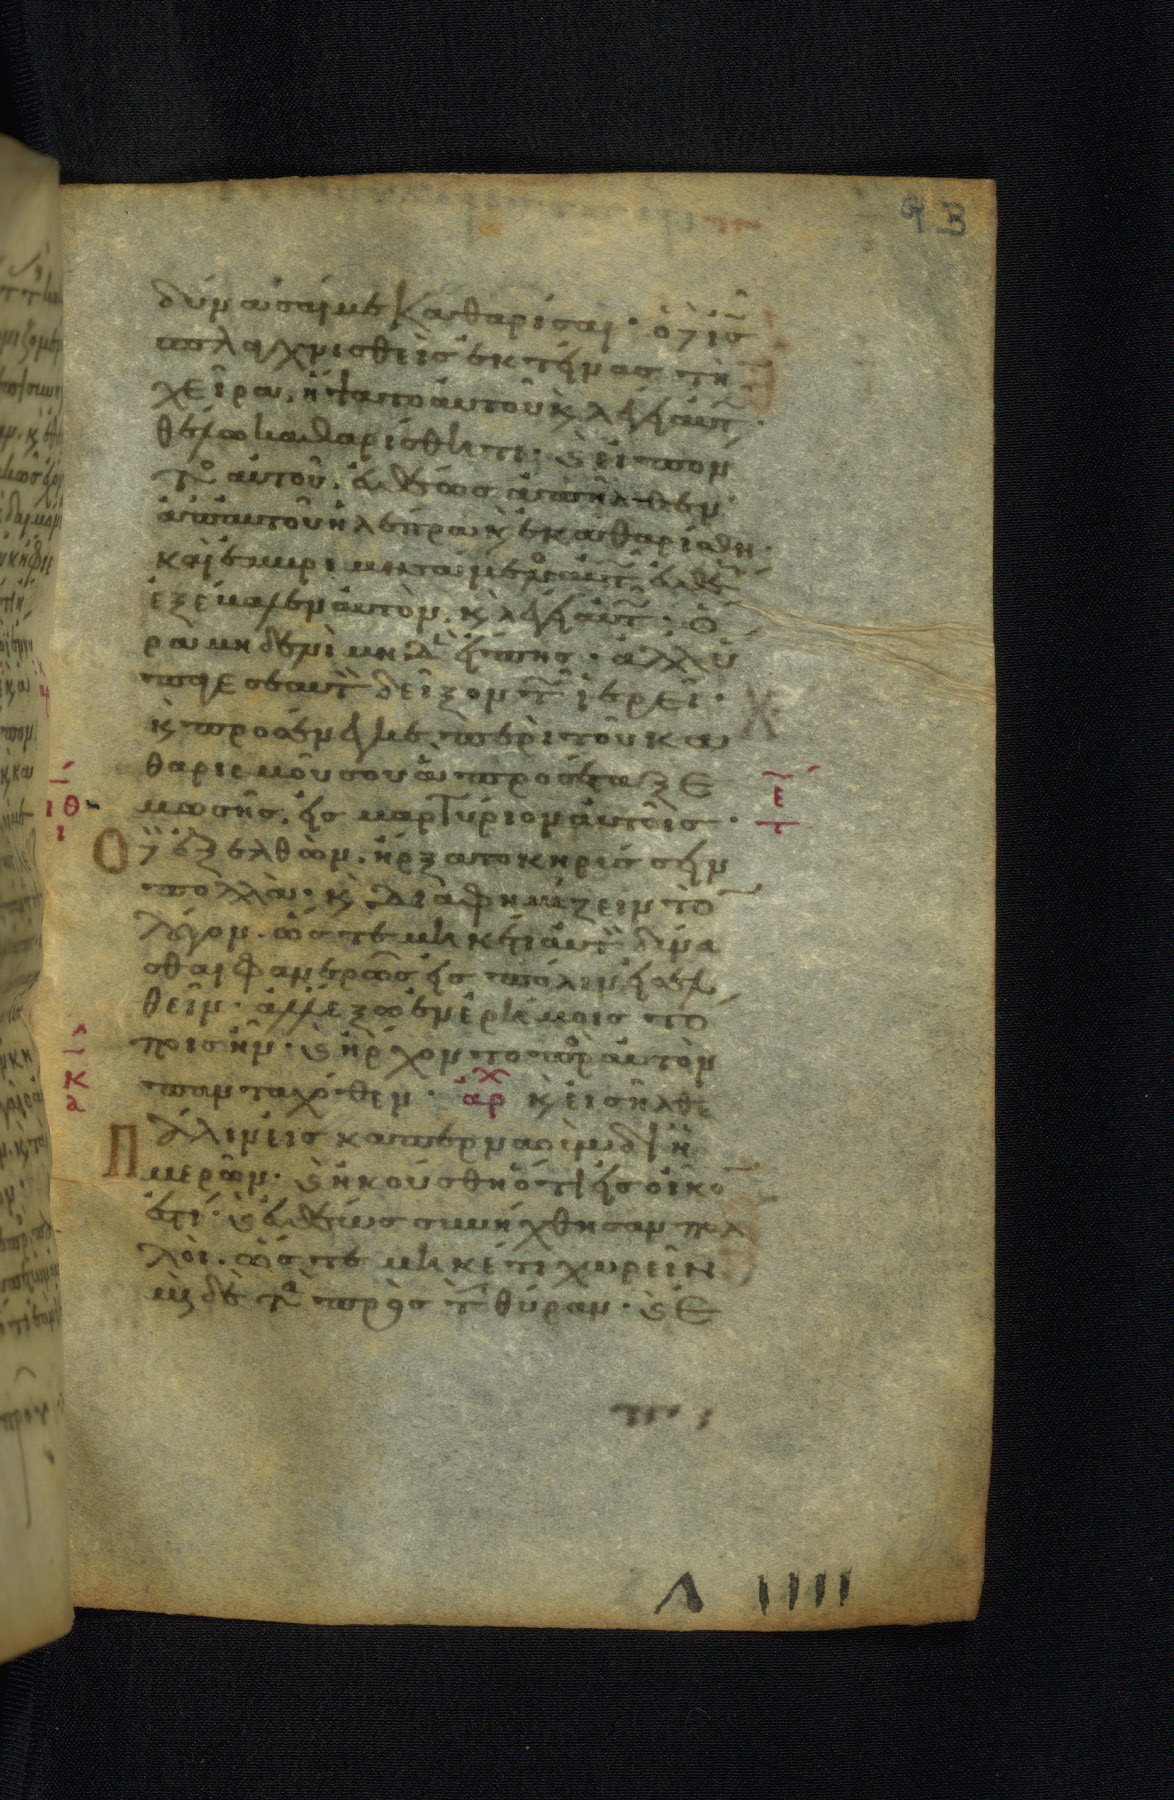 93
δύνασαί με καθαρίσαι · ὁ δὲ ἰ̅ς̅
σπλαγχνισθεὶς ἐκτείνας τὴν
χεῖρα · ἥψατο αὐτοῦ κ λέγει αὐτῶ ·
θέλω καθαρίσθητι · κ εἰπόν
τος αὐτοῦ · εὐθέως ἀπῆλθεν
ἀπ αὐτοῦ ἡ λέπρα κ ἐκαθαρίσθη ·
καὶ ἐμβριμησάμενος αὐτῶ εὐθὺς
ἐξέβαλεν αὐτόν · κ λέγει αὐτῶ · ὅ
ρα μηδενὶ μηδὲν εἴπης · ἀλλ ὕ
παγε σεαυτὸν δεῖξον τῶ ἱερεῖ ·
κ προσένεγκε περὶ τοῦ κα
θαρισμοῦ σου ἃ προσέταξε
μωσῆς · εἰς μαρτύριον αὐτοῖς ·
Ὁ δὲ ἐξελθὼν · ἤρξατο κηρύσσειν
πολλὰ · κ διαφημίζειν τὸν
λόγον · ὥστε μηκέτι αὐτὸν δύνα
σθαι φανερῶς εἰς πόλιν εἰσελ
θεῖν · ἀλλ ἔξω ἐν ἐρήμοις τό
ποις ἦν · κ ἤρχοντο πρὸς αὐτὸν
πανταχόθεν · ἀρχ κ εἰσῆλθε
Πάλιν εἰς καπερναοὺμ δι ἡ
μερῶν · κ ἠκούσθη ὅτι εἰς οἶκόν
ἐστι · κ εὐθέως συνήχθησαν πολ
λοὶ · ὥστε μηκέτι χωρεῖν
μηδὲ τὰ πρὸς τὴν θύραν · κ ἐ
Λ IIII